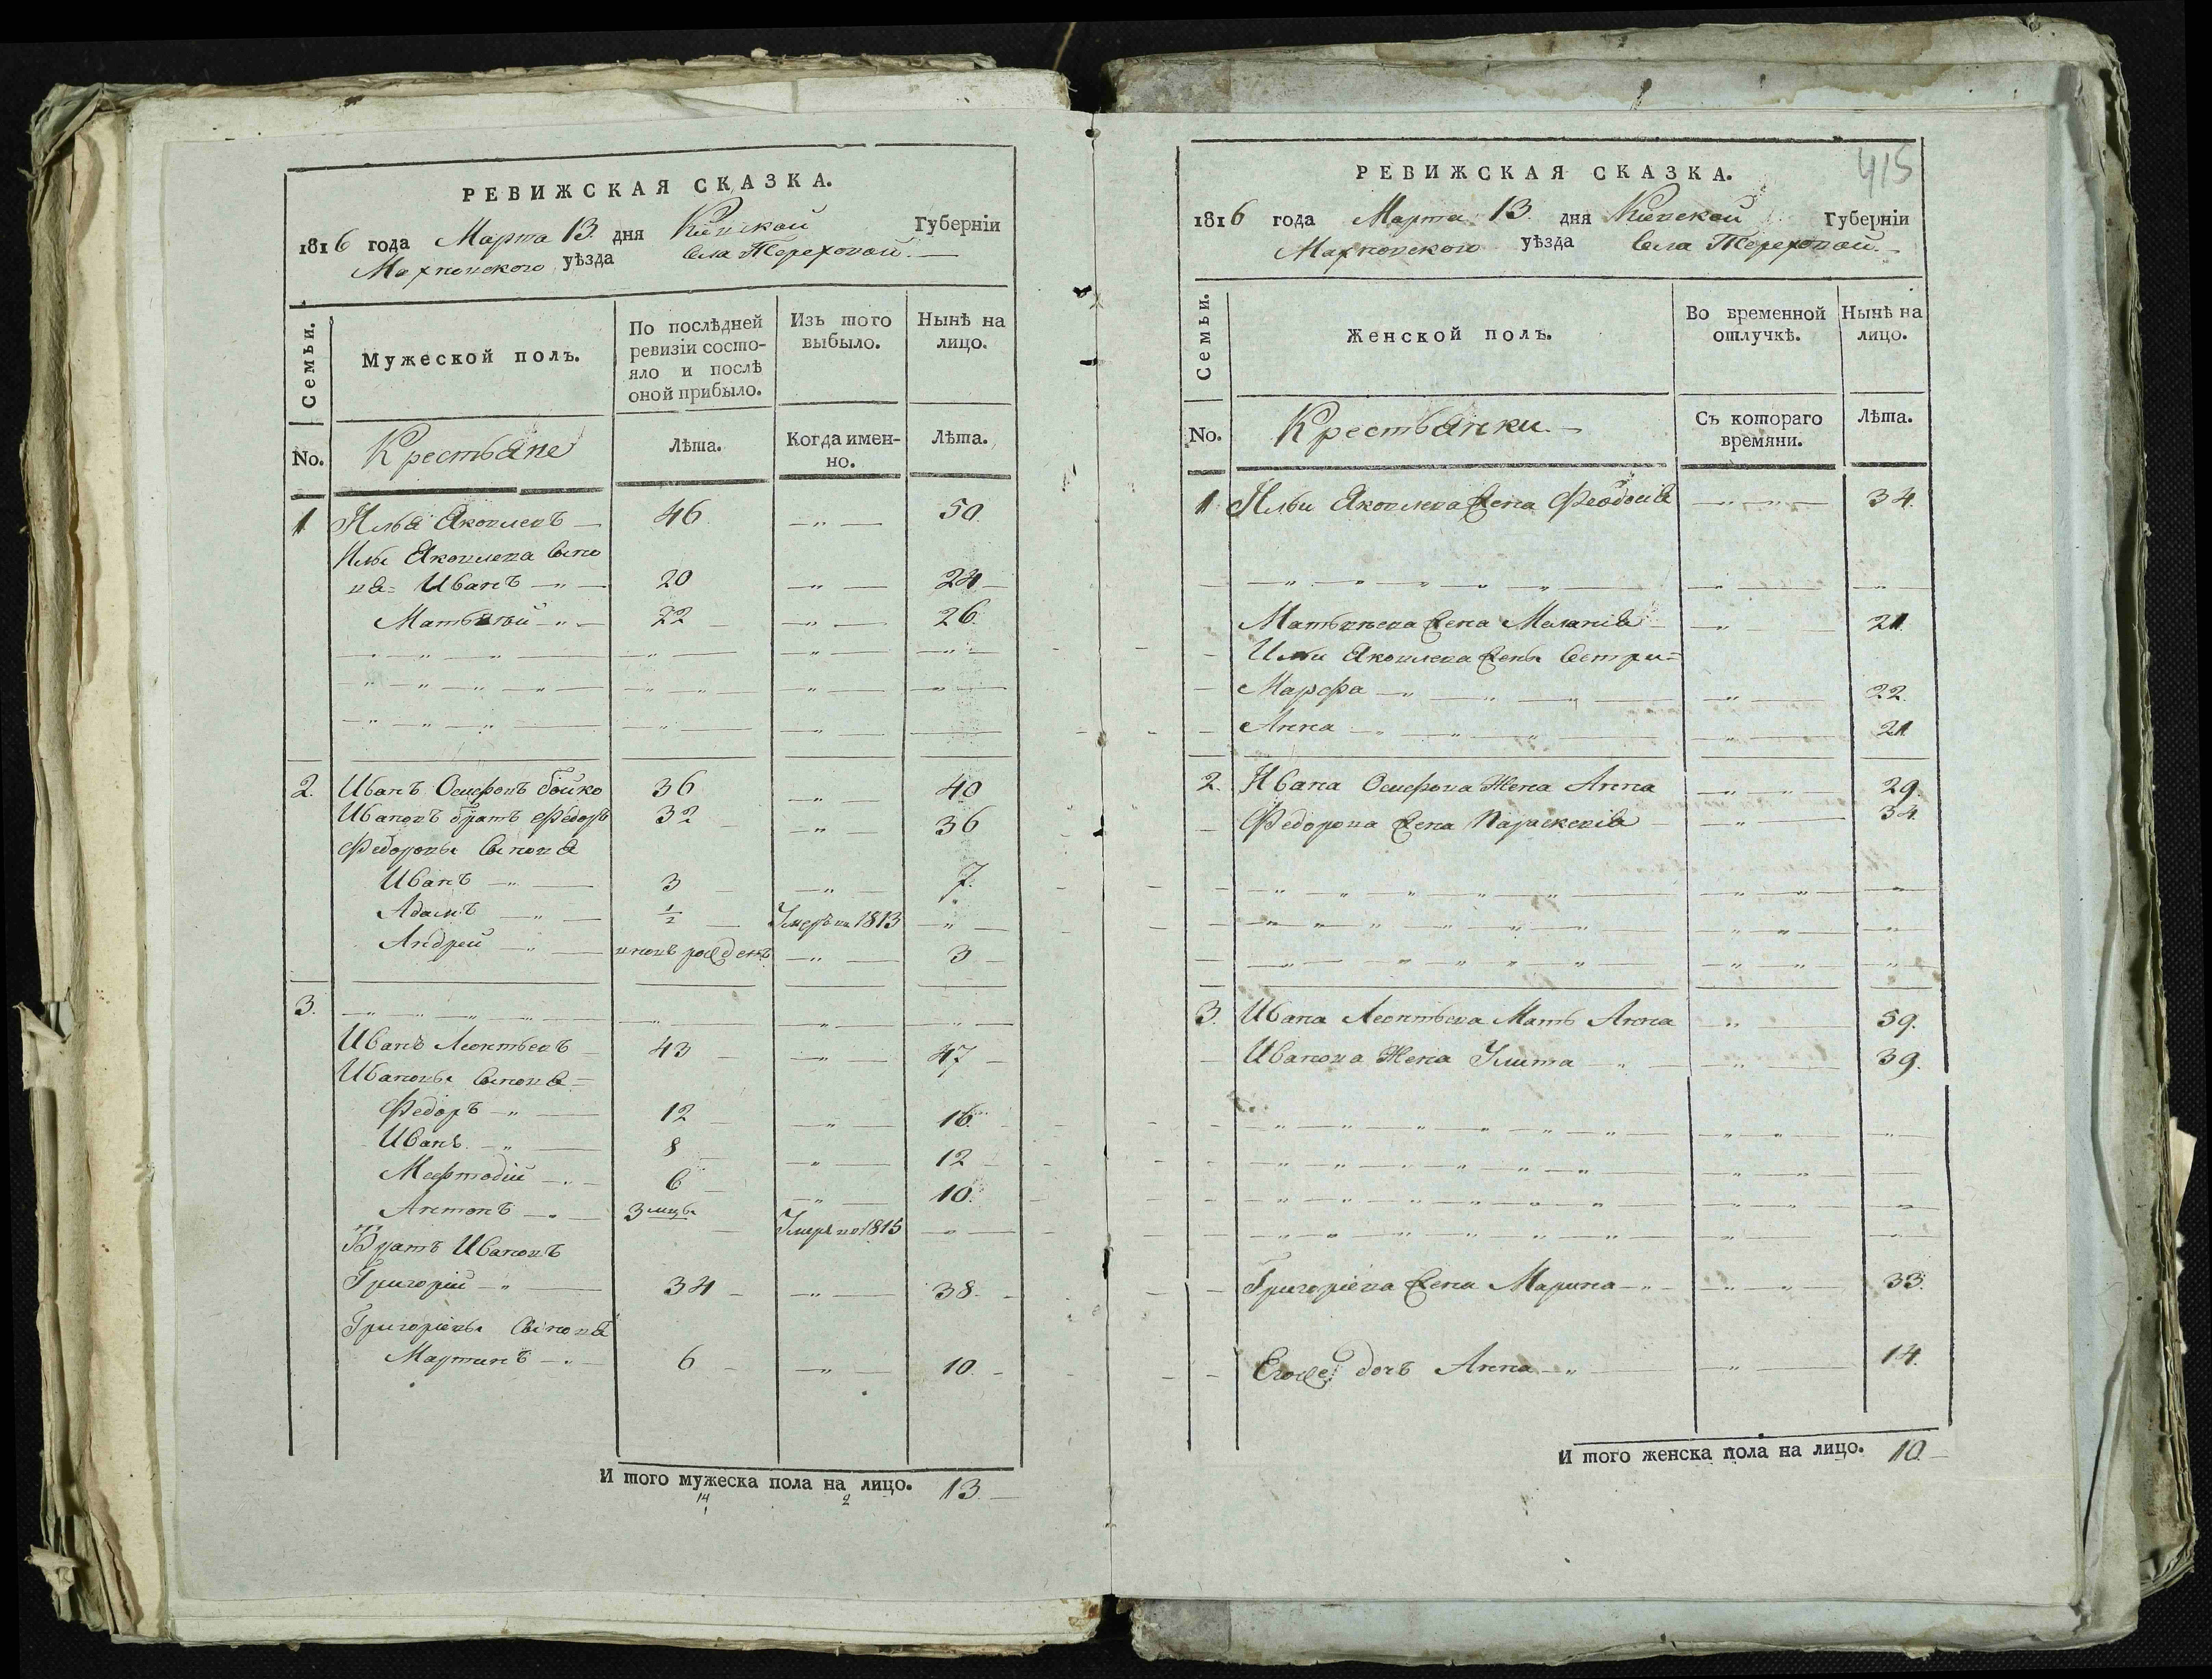 РЕВИЖСКАЯ СКАЗКА.
1816 года Марта 13. дня Кіевской Губерніи
Махновского уѣзда Села Тереховой.
Семьи.
Мужеской полъ.
По послѣдней ревизіи состояло и послѣ оной прибыло.
Изъ того выбыло.
Нынѣ на лицо.
No.
Крестьяне
Лѣта.
Когда именно.
Лѣта.
1 Илья Яковлевъ 46 50
Ильи Яковлева Сыно
вя= Иванъ 20 24
Матвѣй 22 26.
2. Иванъ Осифовъ бойко 36 40
Ивановъ братъ Федоръ 32 36
Федоровы Сыновя
Иванъ 3 7.
Адамъ ½ Умеръ в 1813
Андрей вновь рожденъ 3
3.
Иванъ Леонтьевъ 43 47
Ивановы Сыновя=
Федоръ 12 16.
Иванъ 8 12
Мефтодій 6 10.
Антонъ 3 мцы Умеръ в 1815
Братъ Ивановъ
Григорій 34 38.
Григоріевы Сыновя
Мартинъ 6 10.
И того мужеска пола на лицо. 13.
14 2
415
РЕВИЖСКАЯ СКАЗКА.
1816 года Марта 13. дня Кіевской Губерніи
Махновского уѣзда Села Тереховой.
Семьи.
Женской полъ.
Во временной отлучкѣ.
Нынѣ на лицо.
No.
Крестьянки.
Съ котораго времяни.
Лѣта.
1 Ильи Яковлева Жена Феодосія 34.
Матвѣева Жена Меланія 21.
Ильи Яковлева Жены Сестри=
Марфа 22.
Анна 21
2. Ивана Осифова Жена Анна 29.
Федорова Жена Параскевія 34.
3. Ивана Леонтьева Мать Анна 59.
Иванова Жена Улита 39.
Григоріева Жена Марина 33.
Егоже дочъ Анна 14.
И того женска пола на лицо. 10